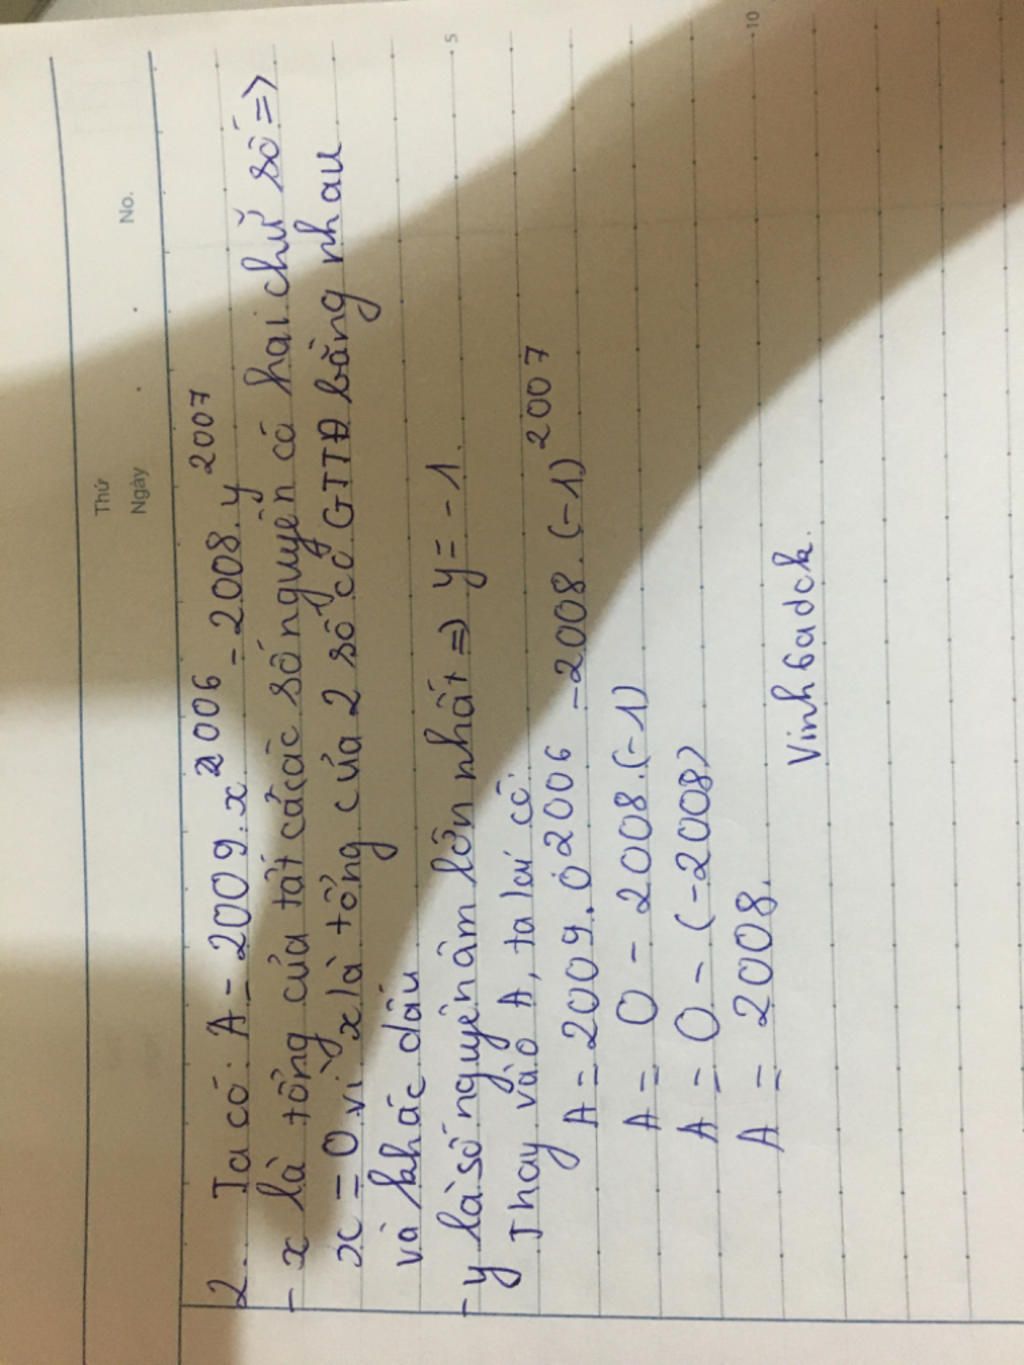 Thứ
Ngày
No.
2. Ta có: A = 2009.x^2006 - 2008.y^2007
- x là tổng của tất cả các số nguyên có hai chữ số =>
x = 0 vì x là tổng của 2 số có GTTĐ bằng nhau
và khác dấu
- y là số nguyên âm lớn nhất => y = -1.
Thay vào A, ta lại có:
A = 2009.0^2006 - 2008.(-1)^2007
A = 0 - 2008.(-1)
A = 0 - (-2008)
A = 2008.
Vinhbadck.
5
10